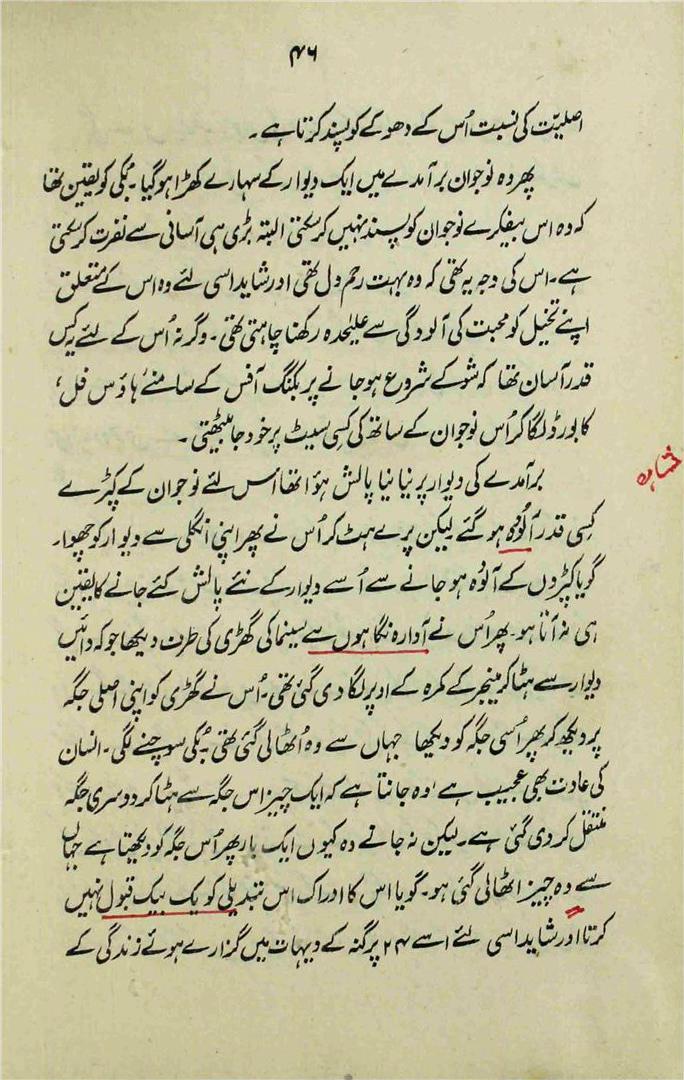 ۴۶
اصلیّت کی نسبت اُس کے دھوکے کو پسند کرتا ہے۔
پھر وہ نوجوان برآمدے میں ایک دیوار کے سہارے کھڑا ہو گیا۔ بُکی کو یقین تھا
کہ وہ اس بیفکرے نوجوان کو پسند نہیں کر سکتی البتہ بڑی ہی آسانی سے نفرت کر سکتی
ہے۔ اس کی وجہ یہ تھی کہ وہ بہت رحم دل تھی اور شاید اسی لئے وہ اس کے متعلق
اپنے تخیل کو محبت کی آلودگی سے علیٰحدہ رکھنا چاہتی تھی۔ وگرنہ اُس کے لئے یہ کس
قدر آسان تھا کہ شو کے شروع ہو جانے پر بکنگ آفس کے سامنے ’ہاؤس فل‘
کا بورڈ لگا کر اُس نوجوان کے ساتھ کی کسی سیٹ پر خود جا بیٹھتی۔
برآمدے کی دیوار پر نیا نیا پالش ہوٴا تھا اس لئے نوجوان کے کپڑے
کسِی قدر آلُودہ ہو گئے لیکن پرے ہٹ کر اُس نے پھر اپنی انگلی سے دیوار کو چھوا۔
گویا کپڑوں کے آلُودہ ہو جانے سے اُسے دیوار کے نئے پالش کئے جانے کا یقین
ہی نہ آتا ہو۔ پھر اُس نے آوارہ نگاہوں سے سینما کی گھڑی کی طرف دیکھا جو کہ دائیں
دیوار سے ہٹا کر منیجر کے کمرہ کے اوپر لگا دی گئی تھی۔ اُس نے گھڑی کو اپنی اصلی جگہ
پر دیکھ کر پھر اُسی جگہ کو دیکھا جہاں سے وہ اُٹھا لی گئی تھی۔ بُکی سوچنے لگی۔ انسان
کی عادت بھی عجیب ہے وہ جانتا ہے کہ ایک چیز اس جگہ سے ہٹا کر دوسری جگہ
منتقل کر دی گئی ہے۔ لیکن نہ جانے وہ کیوں ایک بار پھر اُس جگہ کو دیکھتا ہے جہاں
سے وہ چیز اٹھا لی گئی ہو۔ گویا اس کا ادراک اس تبدیلی کو یک بیک قبول نہیں
کرتا اور شاید اسی لئے اسے ۲۴ پرگنہ کے دیہات میں گزارے ہوئے زندگی کے